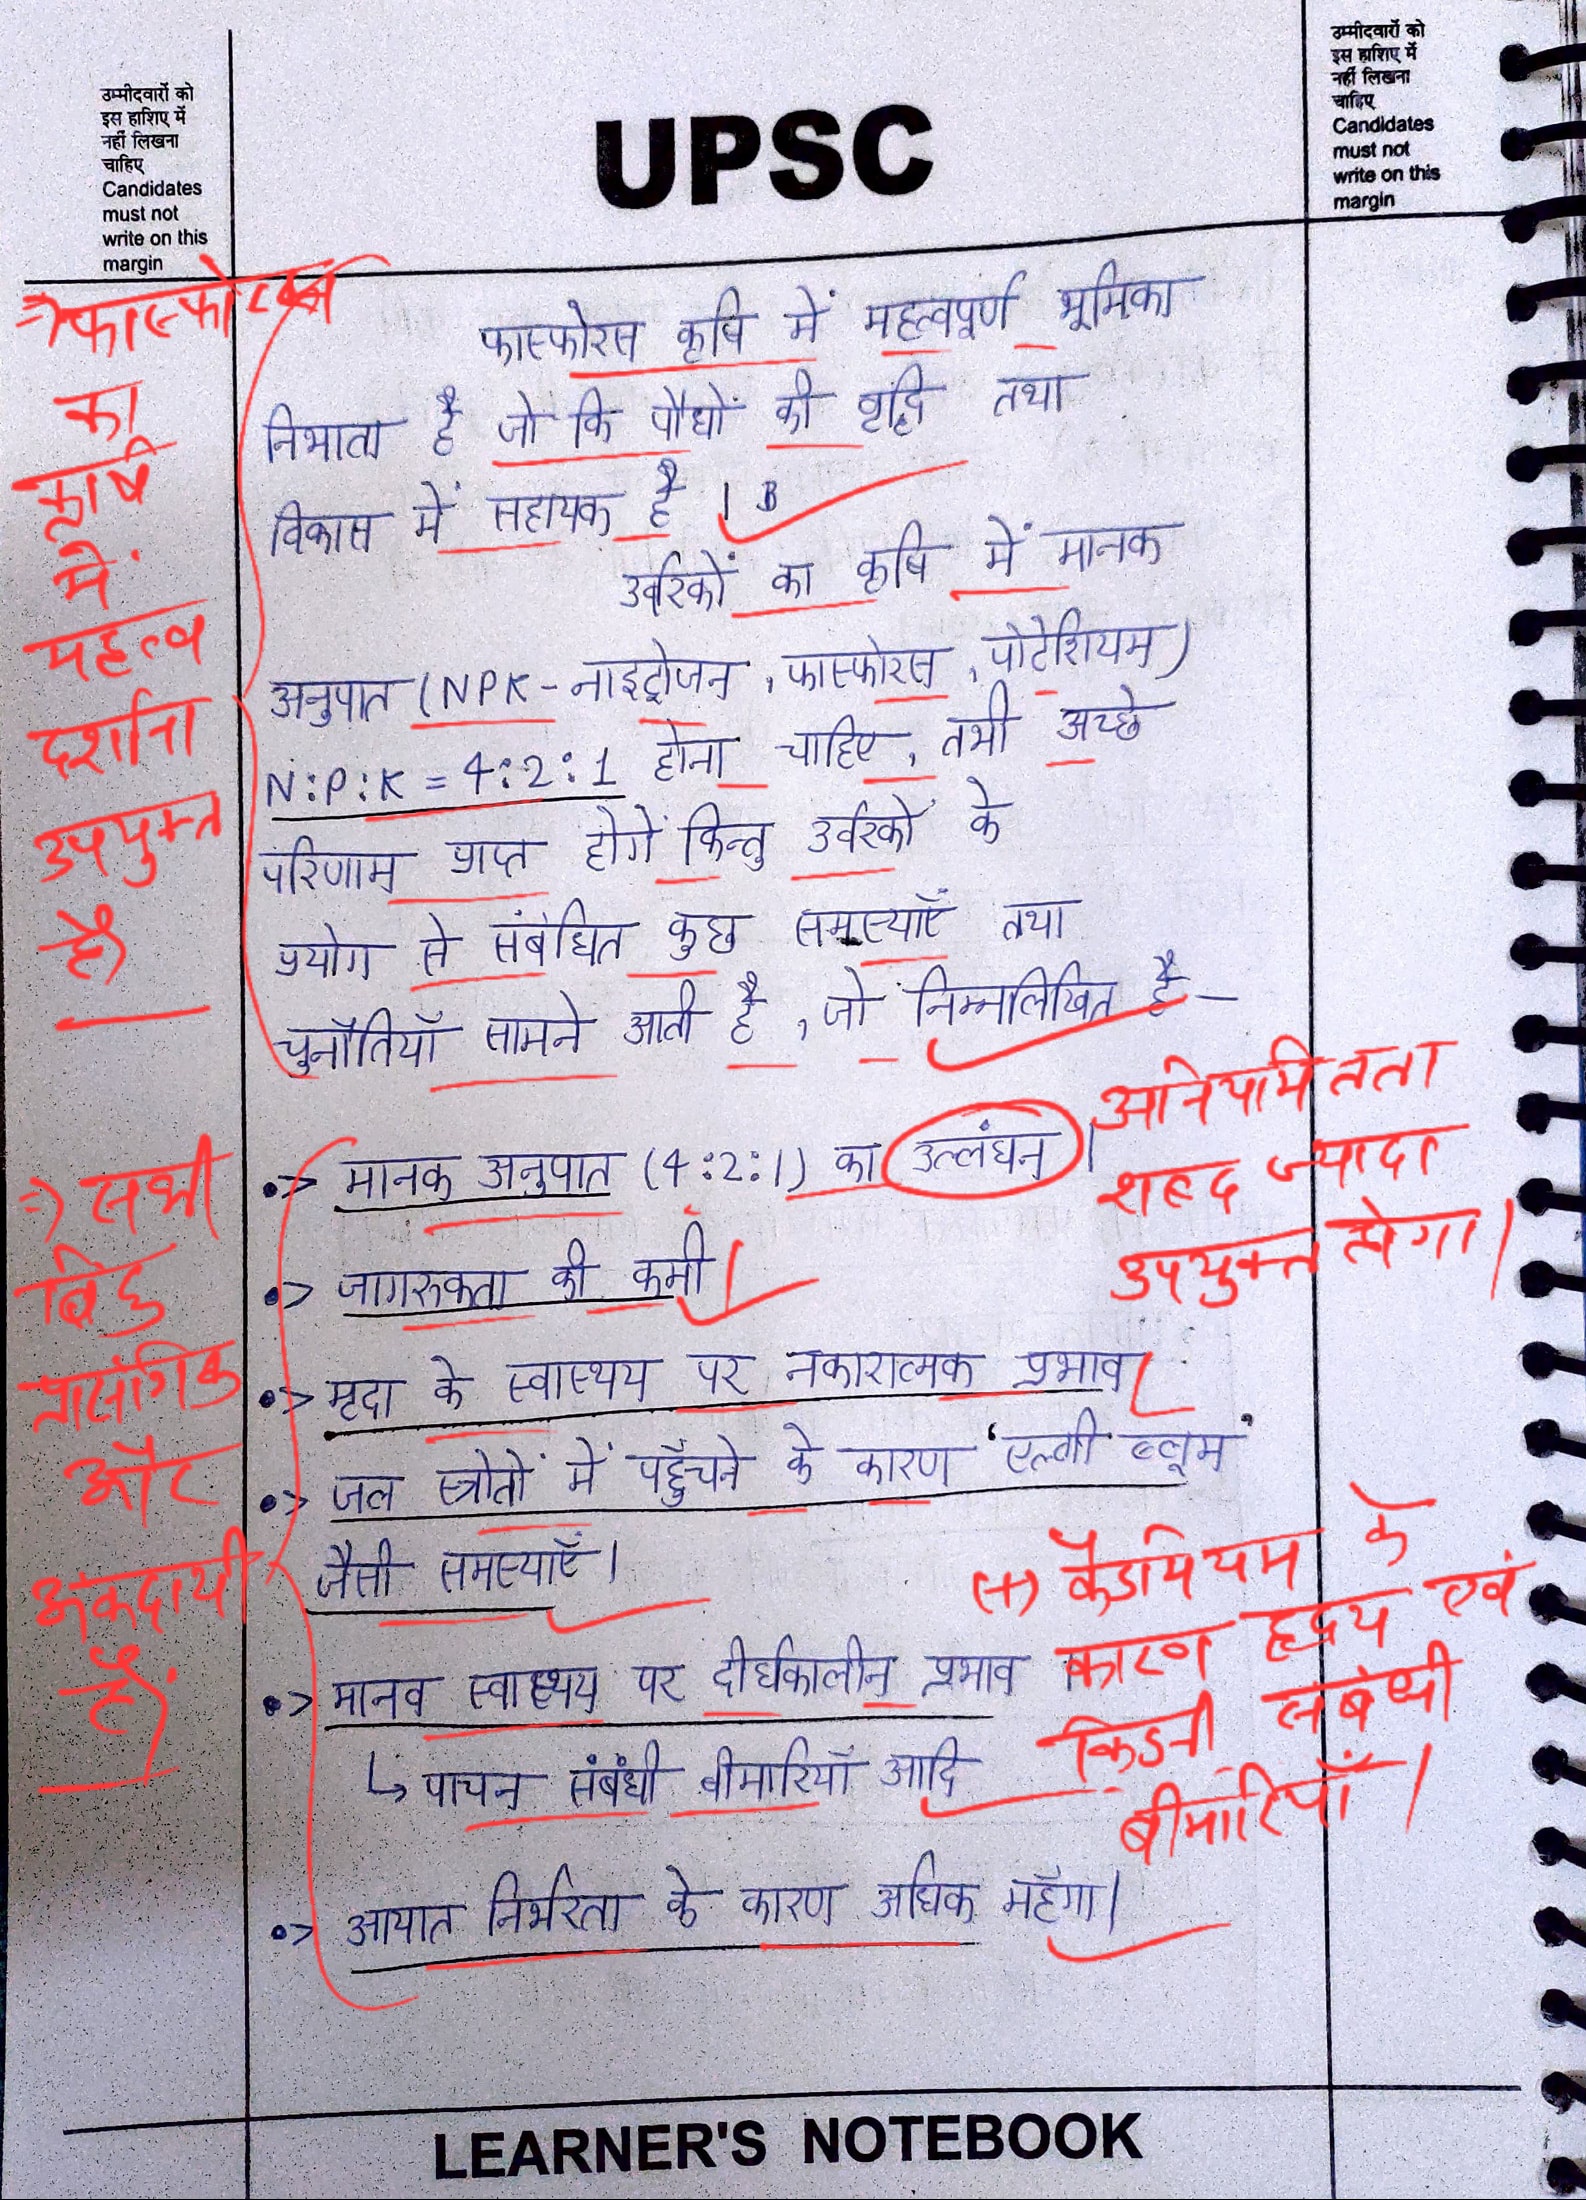 उम्मीदवारों को
इस हाशिए में
नहीं लिखना
चाहिए
Candidates
must not
write on this
margin
UPSC
उम्मीदवारों को
इस हाशिए में
नहीं लिखना
चाहिए
Candidates
must not
write on this
margin
⇒ फास्फोरस
का
कृषि
में
महत्व
दर्शाना
उपयुक्त
है।
फास्फोरस कृषि में महत्वपूर्ण भूमिका
निभाता है जो कि पौधों की वृद्धि तथा
विकास में सहायक है।
उर्वरकों का कृषि में मानक
अनुपात (NPK - नाइट्रोजन, फास्फोरस, पोटेशियम)
N:P:K = 4:2:1 होना चाहिए, तभी अच्छे
परिणाम प्राप्त होगें किन्तु उर्वरकों के
प्रयोग से संबंधित कुछ समस्याएँ तथा
चुनौतियाँ सामने आती है, जो निम्नलिखित है –
⇒ सभी
बिंदु
प्रासंगिक
और
अंकदायी
हैं।
•> मानक अनुपात (4:2:1) का उल्लंघन।
अनियमितता
शब्द ज्यादा
उपयुक्त होगा।
•> जागरुकता की कमी।
•> मृदा के स्वास्थय पर नकारात्मक प्रभाव
•> जल स्त्रोतों में पहुँचने के कारण 'एल्गी ब्लूम'
जैसी समस्याएँ।
•> मानव स्वास्थय पर दीर्घकालीन प्रभाव
↳ पाचन संबंधी बीमारियाँ आदि
(+) कैडमियम के
कारण हृदय एवं
किडनी संबंधी
बीमारियाँ।
•> आयात निर्भरता के कारण अधिक महँगा।
LEARNER'S NOTEBOOK